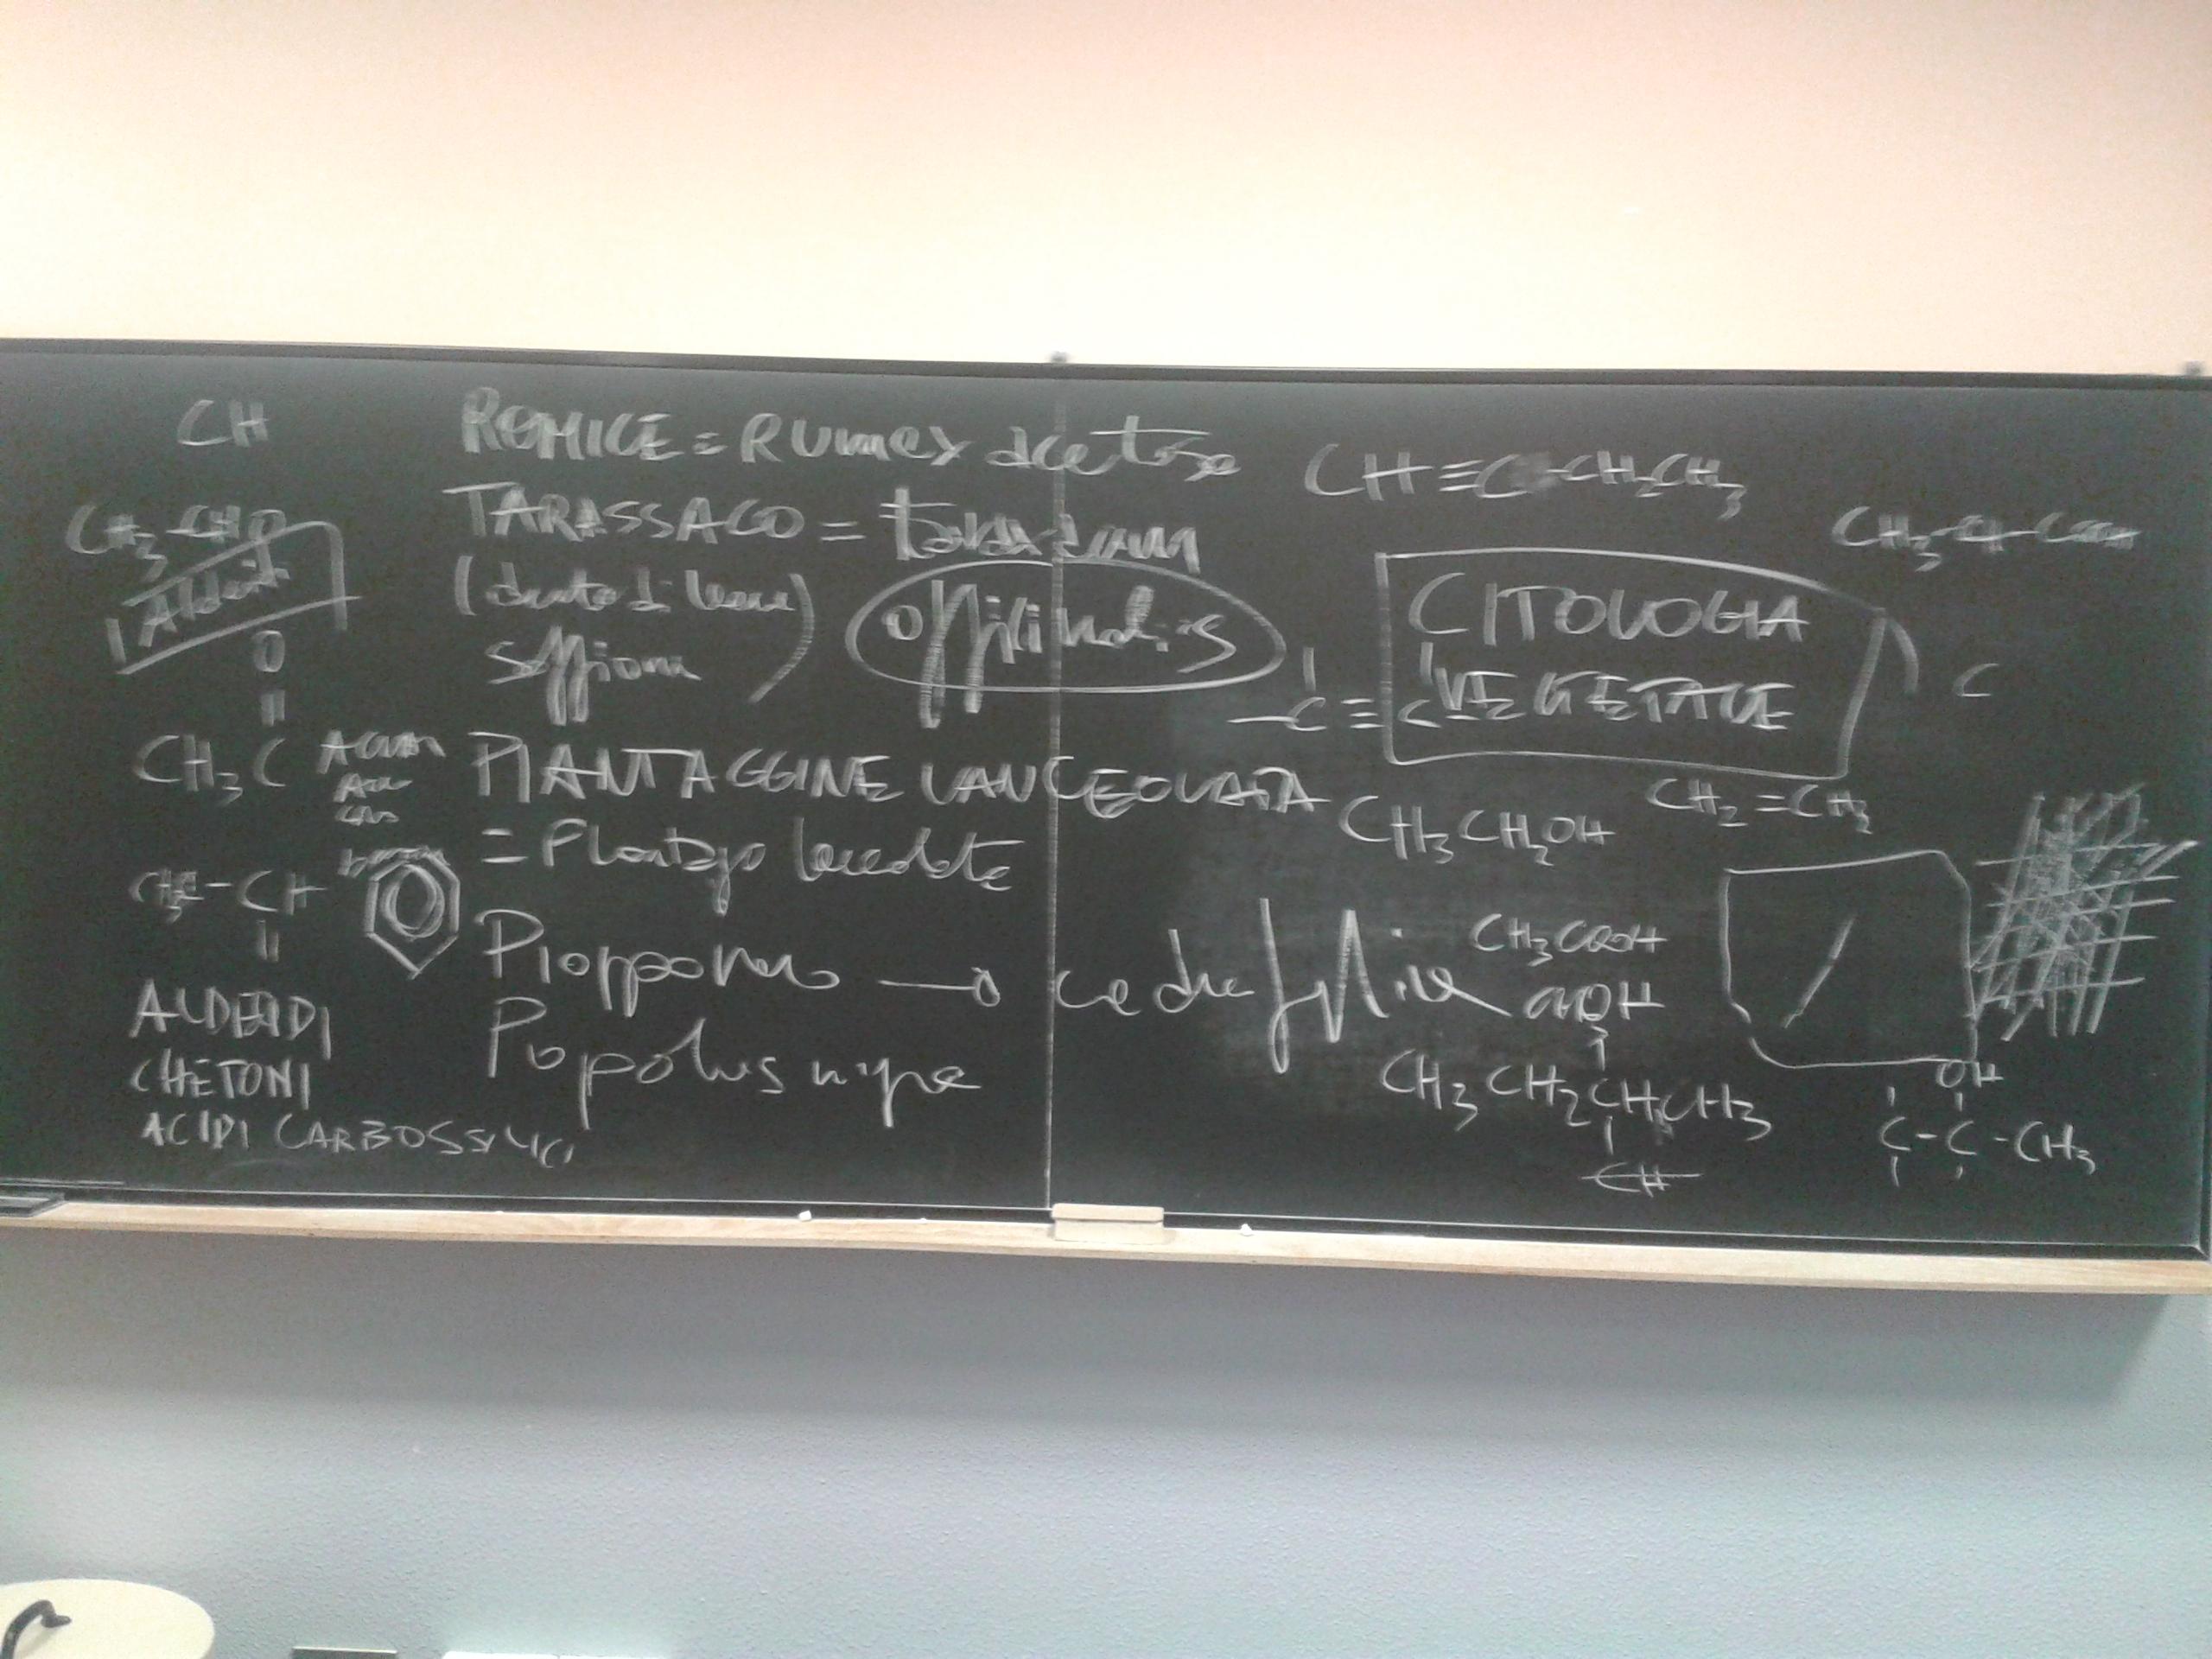 CH
CH3-CHO
O
||
CH3 C
CH
||
ALDEIDI
CHETONI
ACIDI CARBOSSILICI
ROMICE = RUMEX acetosa
TARASSACO = taraxacum
(dente di leone) officinalis
soffione
PIANTAGGINE LANCEOLATA
= Plantago
Pioppo nero → cade foglie
Popolus nigra
CH≡C-CH2CH3
CH3-CH-COOH
CITOLOGIA
VEGETALE
-C≡C-
C
CH2=CH2
CH3CH2OH
CH3COOH
OH
CH3CH2CHCH3
CH
OH
C-C-CH3